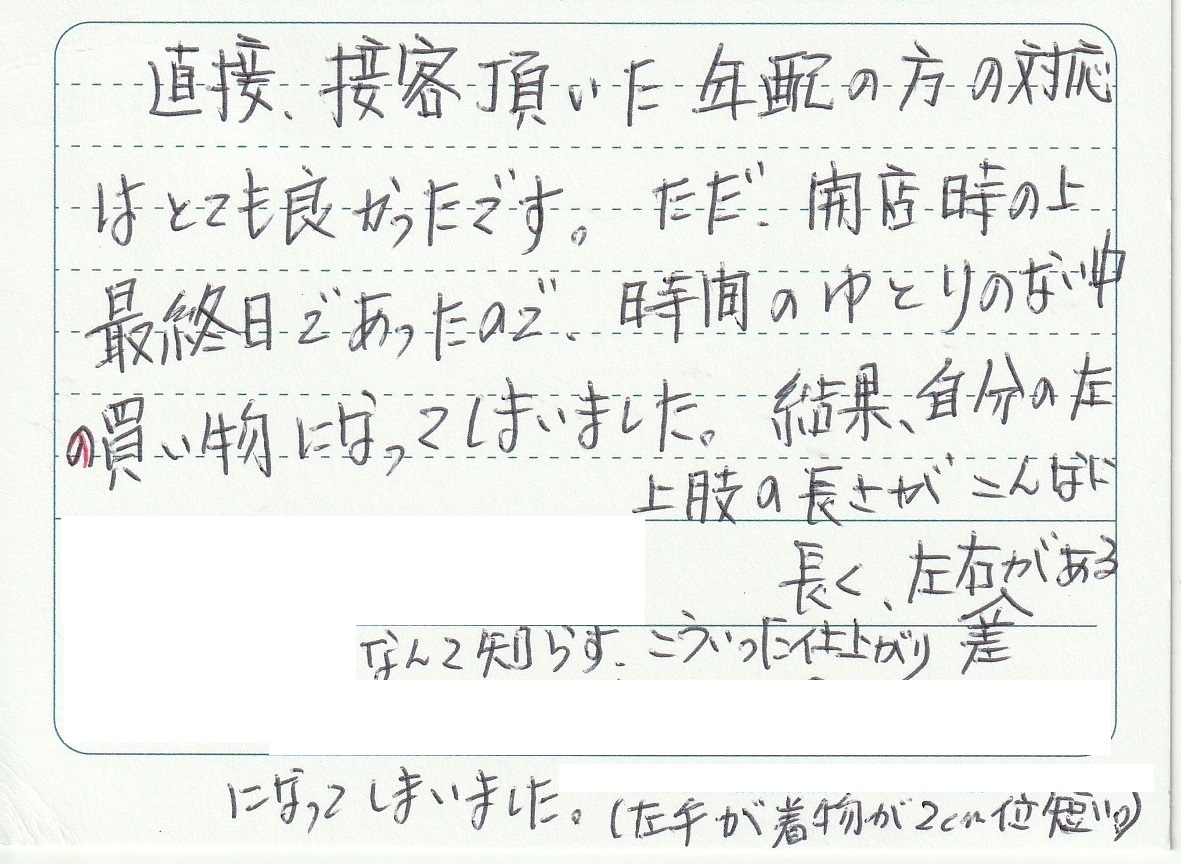 直接、接客頂いた年配の方の対応
はとても良かったです。ただ、開店時の上
最終日であったので、時間のゆとりのない中
の買い物になってしまいました。結果、自分の左
上肢の長さがこんなに
長く、左右差がある
なんて知らず、こういった仕上がり
になってしまいました。
(左手が着物が2cm位短い。)